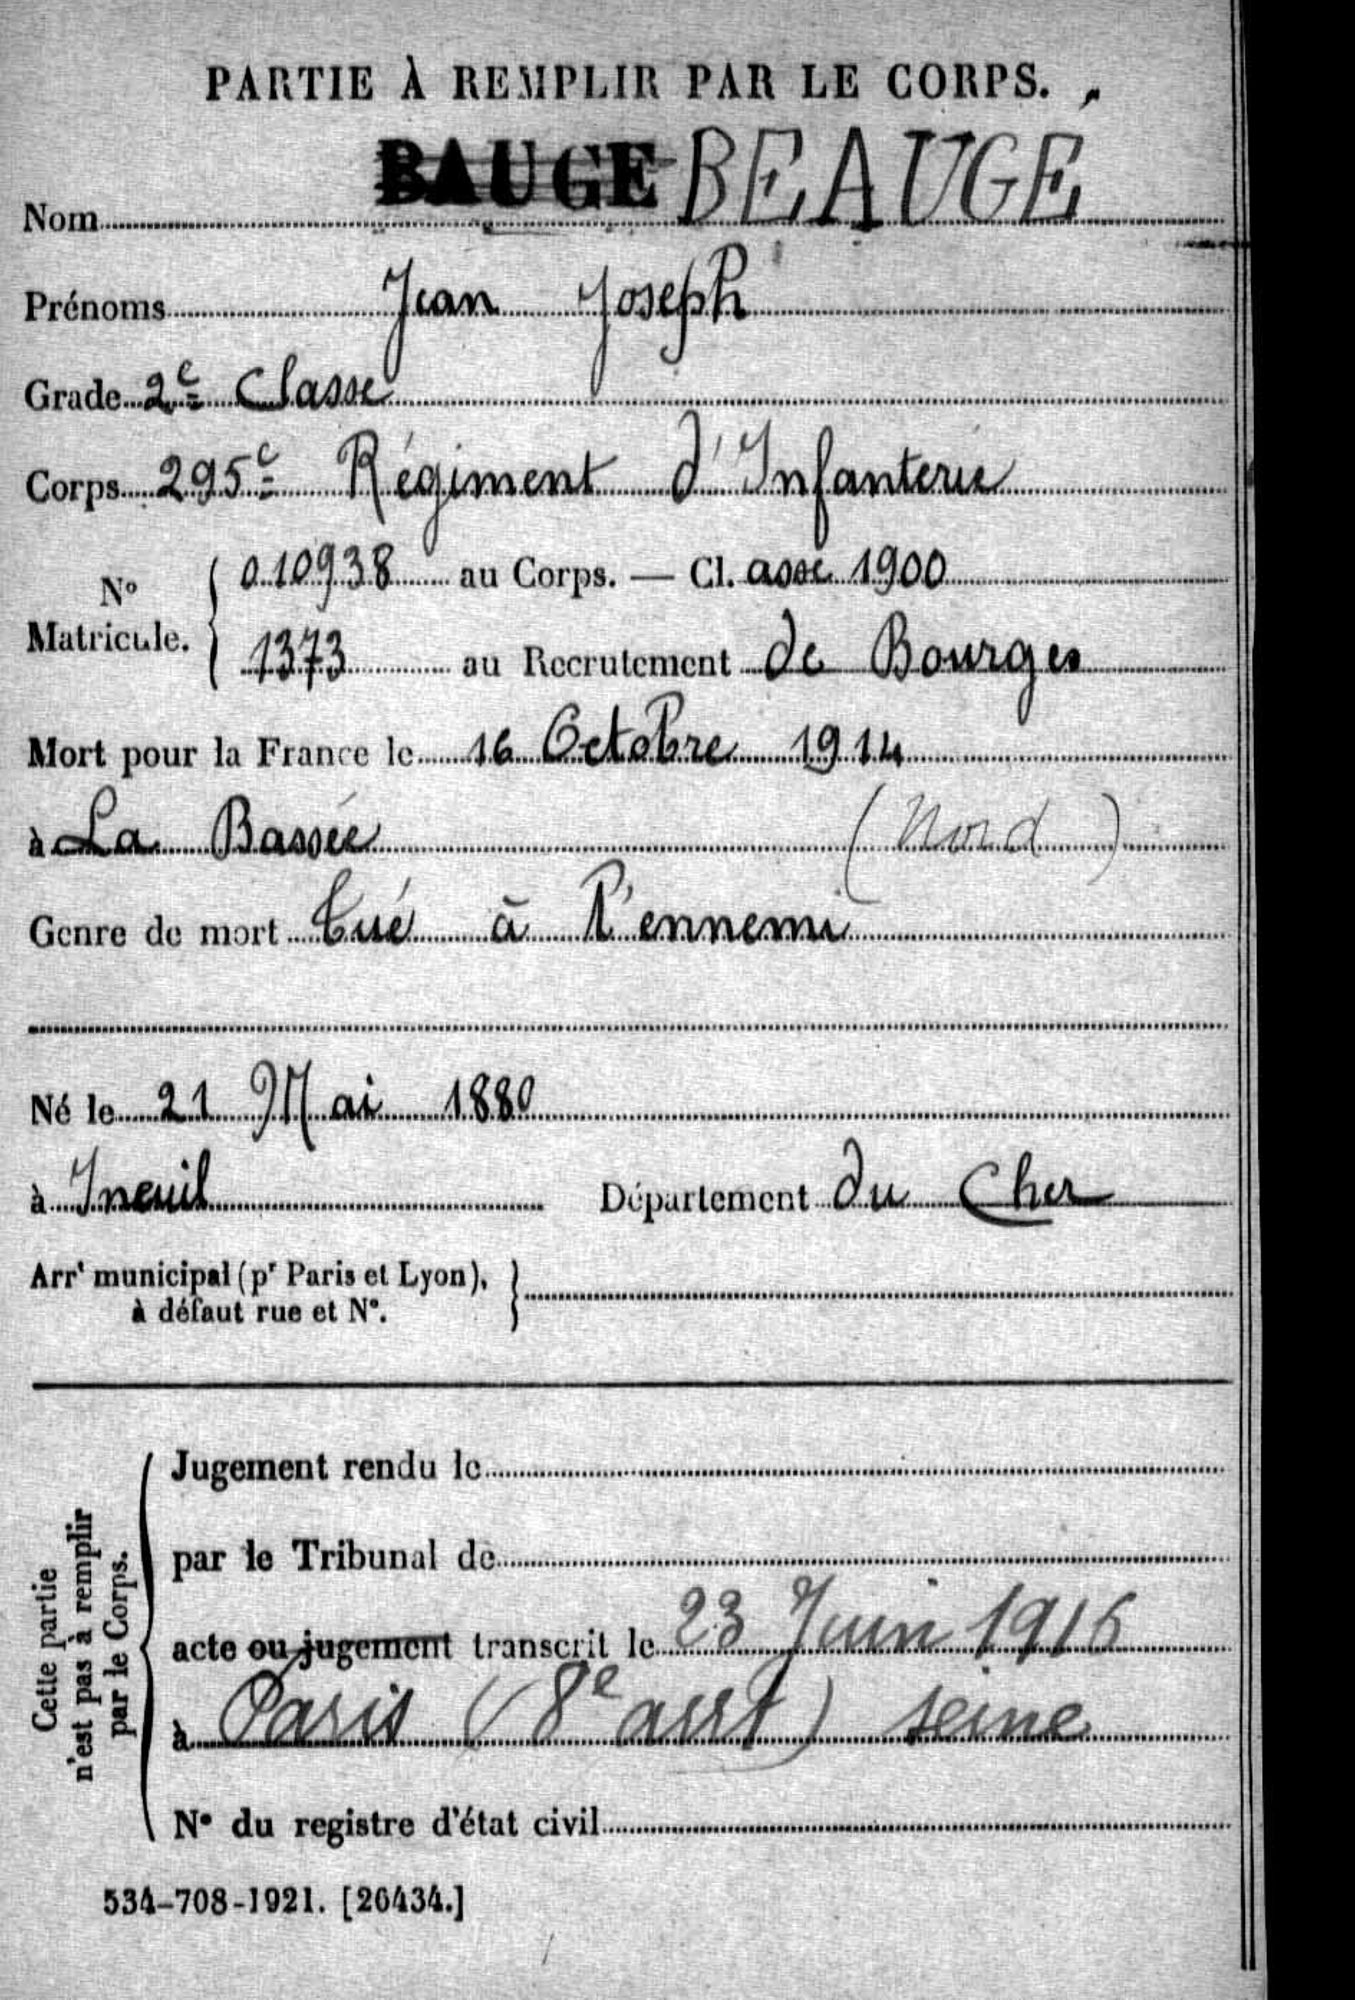 PARTIE À REMPLIR PAR LE CORPS.
BAUGE BEAUGÉ
Nom
Prénoms Jean Joseph
Grade 2e Classe
Corps 295e Régiment d'Infanterie
No Matricule. 010938 au Corps. — Cl. asse 1900
1373 au Recrutement de Bourges
Mort pour la France le 16 Octobre 1914
à La Bassée (Nord)
Genre de mort Tué à l'ennemi
Né le 21 Mai 1880
à Ineuil Département du Cher
Arrt municipal (pr Paris et Lyon),
à défaut rue et N°.
Cette partie
n'est pas à remplir
par le Corps.
Jugement rendu le
par le Tribunal de
acte ou jugement transcrit le 23 Juin
à Paris (8e arrt) seine
N° du registre d'état civil
534-708-1921. [26434.]